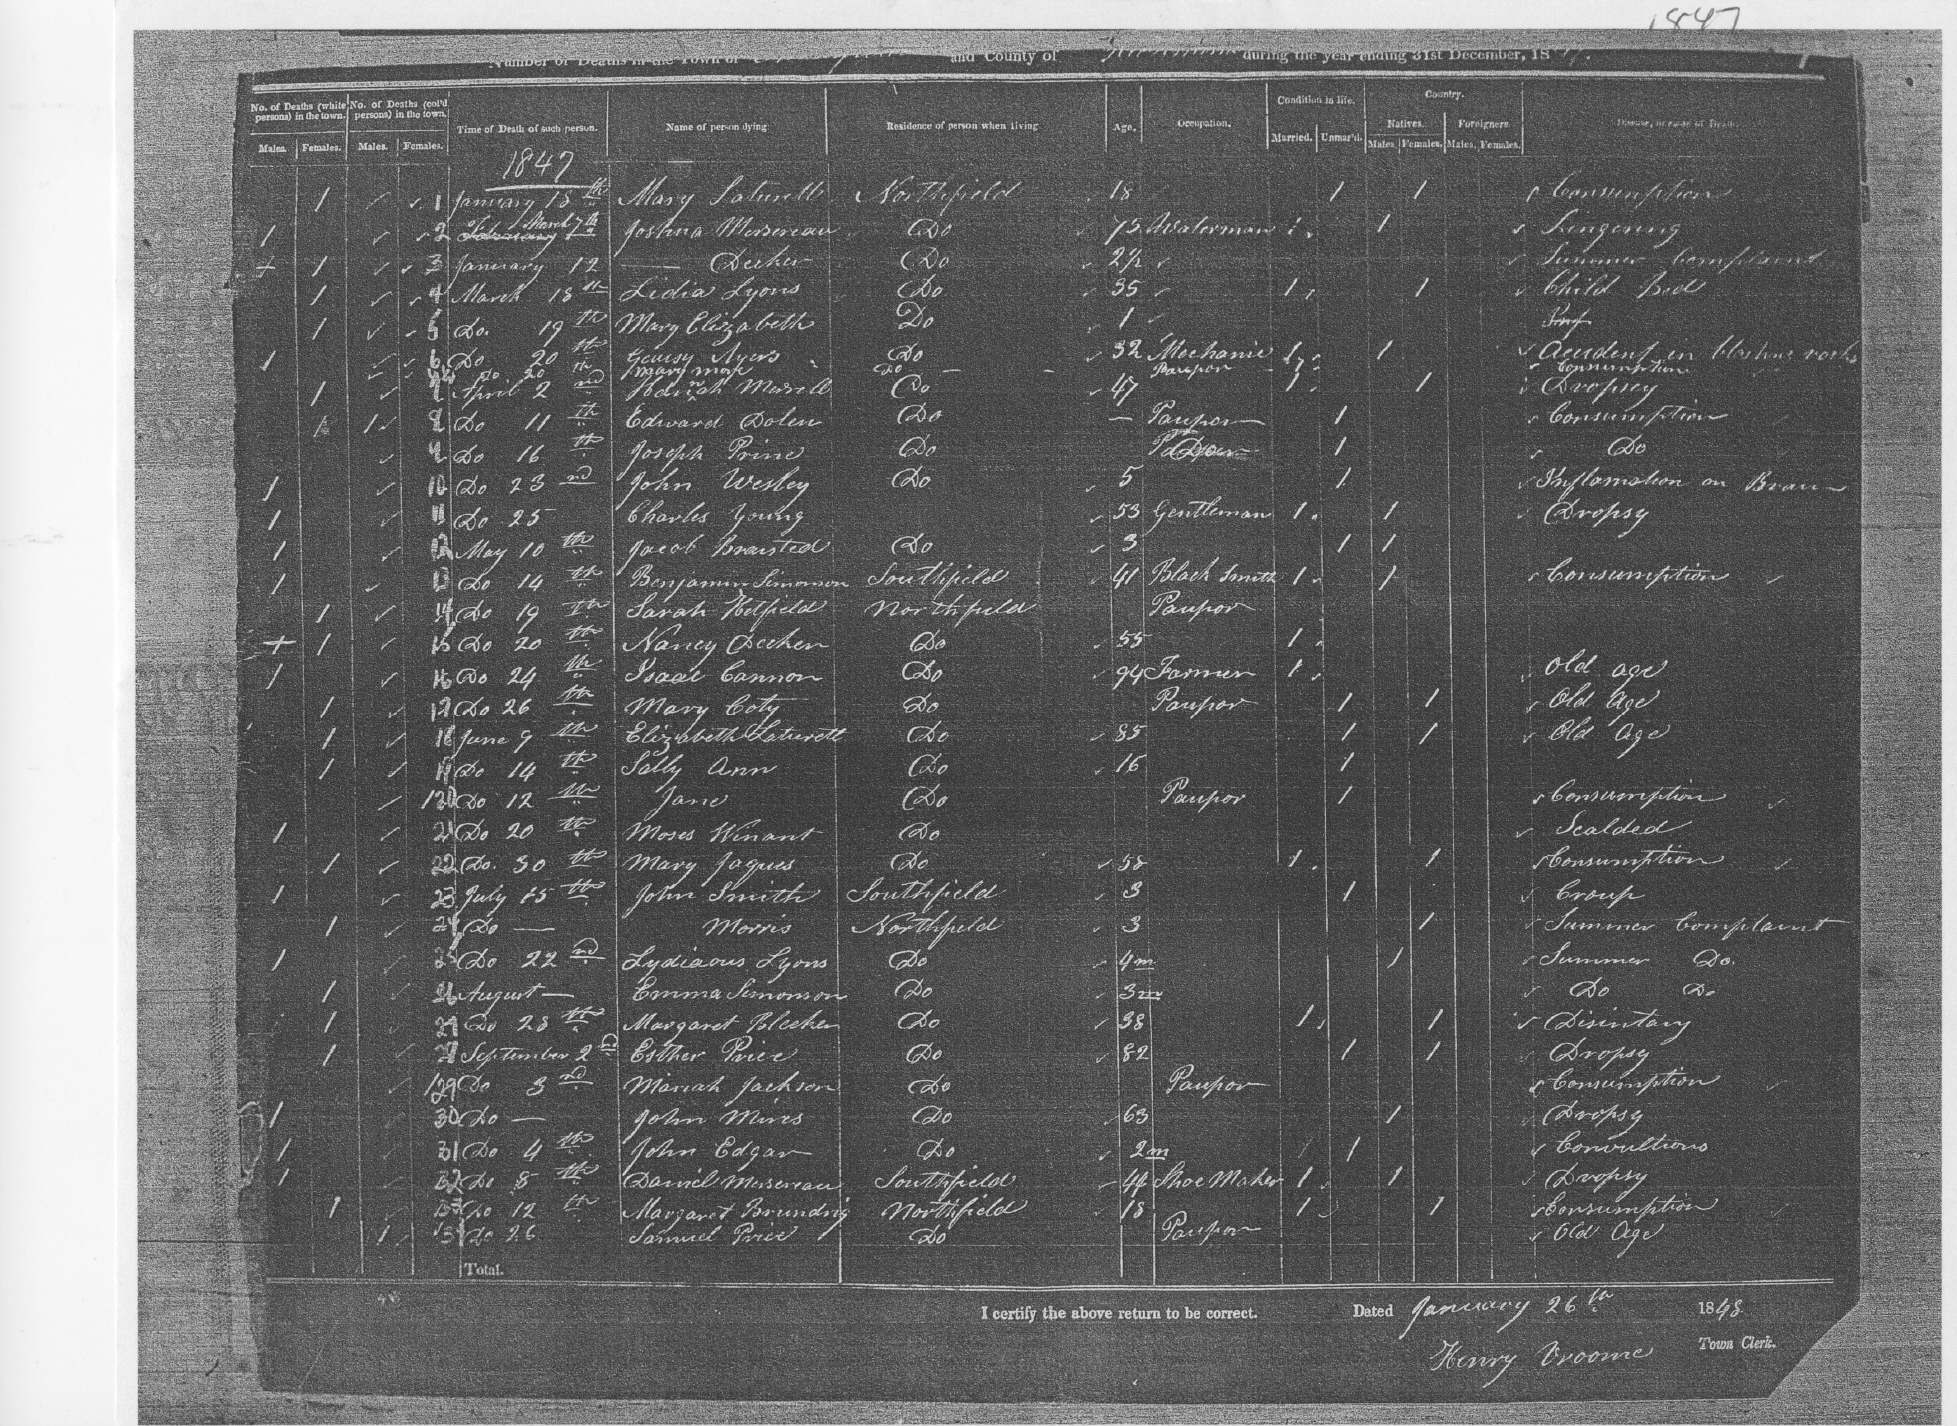 1847
Number of Deaths in the Town of and County of during the year ending 31st December, 18
No. of Deaths (white persons) in the town. No. of Deaths (col'd persons) in the town. Time of Death of such person. Name of person dying. Residence of person when living. Age. Occupation. Condition in life. Country. Disease, or cause of Death.
Males. Females. Males. Females. Married. Unmar'd. Natives. Foreigners.
Males. Females. Males. Females.
1847
1 1 January 18th Mary Laturett Northfield 18 1 1 Consumption
1 2 March 7th Joshua Mersereau Do 75 Waterman 1 1 Lingering
+ 1 3 January 12 — Decker Do 2½ Summer Complaint
1 4 March 18th Lidia Lyons Do 35 1 1 Child Bed
1 5 Do. 19th Mary Elizabeth Do 1
1 6 Do 20th Ayers Do 32 Mechanic 1 1 Accident in blasting rocks
Do 20th Mary Do — — Paupor Consumption
1 7 April 2nd Merrell Do 47 1 1 Dropsey
1 8 Do 11th Edward Dolen Do — Paupor 1 Consumption
9 Do 16th Joseph Prine Do 1 Do
1 10 Do 23rd John Wesley Do 5 1 Inflamation on Brain
1 11 Do 25 Charles Young 53 Gentleman 1 1 Dropsy
1 12 May 10th Jacob Braisted Do 3 1 1
1 13 Do 14th Benjamin Simonson Southfield 41 Black Smith 1 1 Consumption
1 14 Do 19th Sarah Hetfield Northfield Paupor
+ 1 15 Do 20th Nancy Decker Do 55 1
1 16 Do 24th Isaac Cannon Do 94 Farmer 1 Old age
1 17 Do 26th Mary Coty Do Paupor 1 1 Old Age
1 18 June 9th Elizabeth Laturett Do 85 1 1 Old Age
1 19 Do 14th Sally Ann Do 16 1
1 20 Do 12th Jane Do Paupor 1 Consumption
1 21 Do 20th Moses Winant Do Scalded
1 22 Do. 30th Mary Jaques Do 58 1 1 Consumption
1 23 July 15th John Smith Southfield 3 1 Croup
1 24 Do — Morris Northfield 3 1 Summer Complaint
1 25 Do 22nd Lydiaous Lyons Do 4m 1 Summer Do.
1 26 August — Emma Simonson Do 3m Do Do
1 27 Do 28th Margaret Bleeker Do 38 1 1 Disintary
1 September 2nd Esther Price Do 82 1 1 Dropsy
1 29 Do 3rd Mariah Jackson Do Paupor Consumption
1 30 Do — John Mires Do 63 1 Dropsy
1 31 Do 4th John Edgar Do 2m 1 Convultions
1 32 Do 8th Daniel Mersereau Southfield 44 Shoe Maker 1 1 Dropsy
1 33 Do 12th Margaret Brundrig Northfield 18 1 1 Consumption
1 34 Do 26 Samuel Price Do Paupor Old Age
Total.
I certify the above return to be correct. Dated January 26th 1848
Henry Vroome Town Clerk.